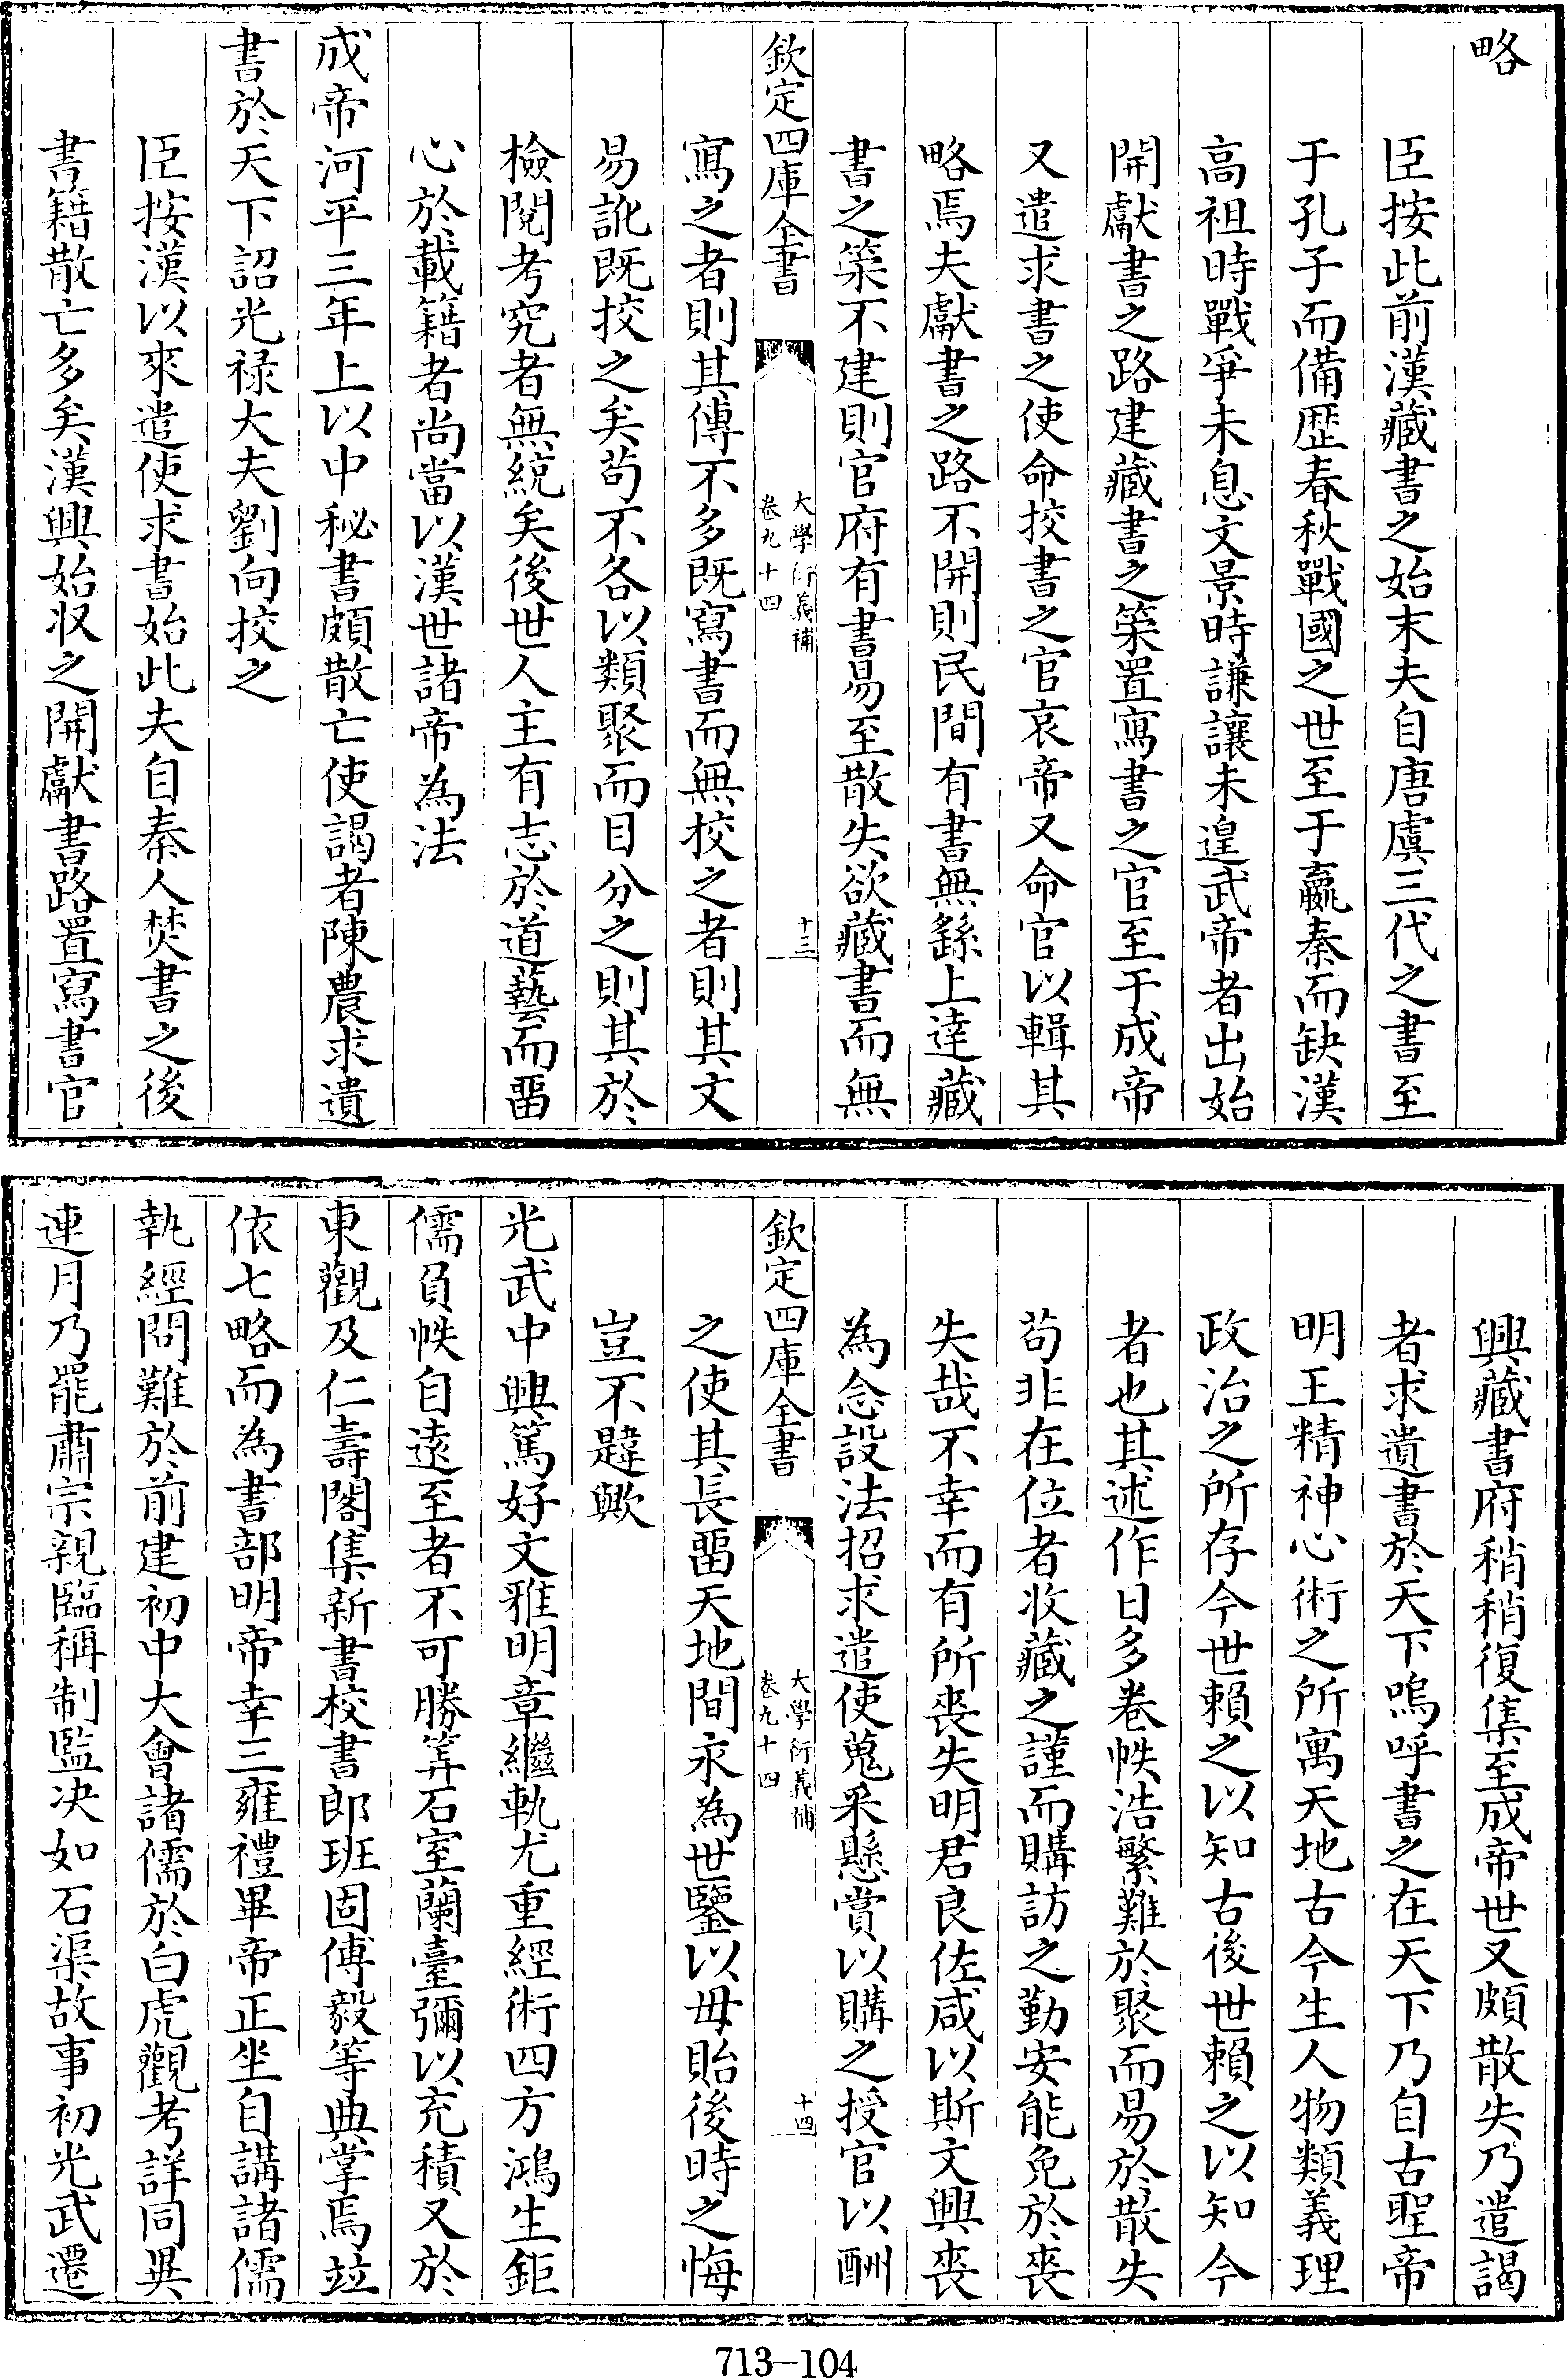 略
臣按此前漢藏書之始末夫自唐虞三代之書至
于孔子而備歴春秋戰國之世至于嬴秦而缺漢
高祖時戰爭未息文景時謙讓未遑武帝者出始
開獻書之路建藏書之䇿置寫書之官至于成帝
又遣求書之使命挍書之官哀帝又命官以輯其
略焉夫獻書之路不開則民間有書無繇上達藏
書之䇿不建則官府有書易至散失欲藏書而無
欽定四庫全書
大學衍義補
卷九十四
十三
寫之者則其傳不多既寫書而無校之者則其文
易訛既挍之矣苟不各以類聚而目分之則其於
檢閱考究者無統矣後世人主有志於道藝而畱
心於載籍者尚當以漢世諸帝為法
成帝河平三年上以中秘書頗散亡使謁者陳農求遺
書於天下詔光禄大夫劉向挍之
臣按漢以來遣使求書始此夫自秦人焚書之後
書籍散亡多矣漢興始収之開獻書路置寫書官
興藏書府稍稍復集至成帝世又頗散失乃遣謁
者求遺書於天下嗚呼書之在天下乃自古聖帝
明王精神心術之所寓天地古今生人物類義理
政治之所存今世賴之以知古後世賴之以知今
者也其述作日多卷帙浩繁難於聚而易於散失
苟非在位者收藏之謹而購訪之勤安能免於喪
失哉不幸而有所喪失明君良佐咸以斯文興喪
為念設法招求遣使蒐采懸賞以購之授官以酬
欽定四庫全書
大學衍義補
卷九十四
十四
之使其長畱天地間永為世鑒以毋貽後時之悔
豈不韙歟
光武中興篤好文雅明章繼軌尤重經術四方鴻生鉅
儒負帙自遠至者不可勝筭石室蘭臺彌以充積又於
東觀及仁壽閣集新書校書郎班固傅毅等典掌焉竝
依七略而為書部明帝幸三雍禮畢帝正坐自講諸儒
執經問難於前建初中大會諸儒於白虎觀考詳同異
連月乃罷肅宗親臨稱制監決如石渠故事初光武遷
713-104